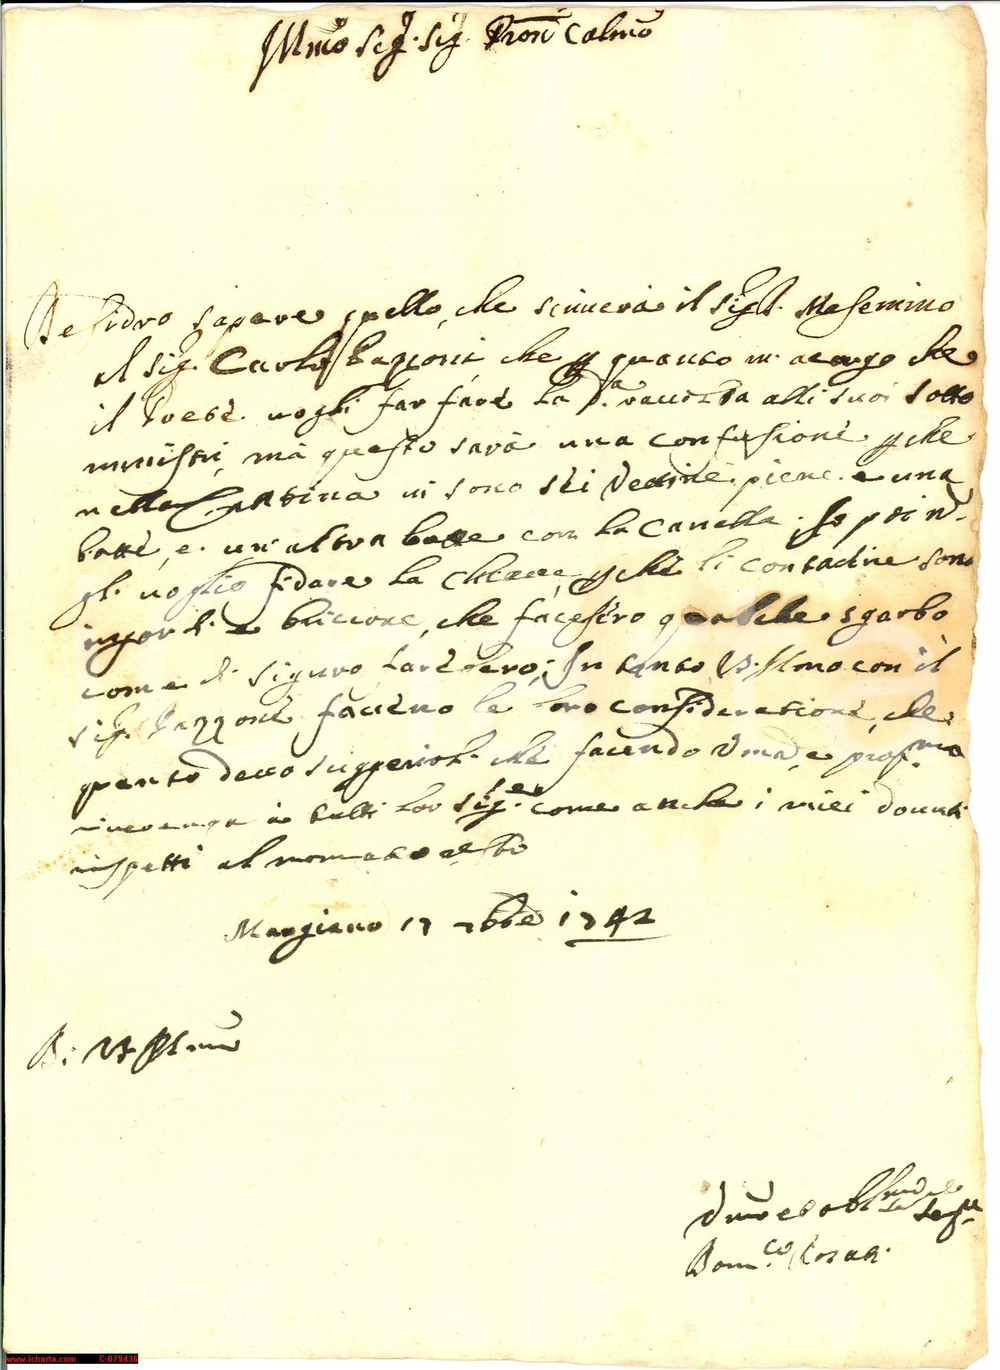 Illmo Sig.r Sig. Pron Colmo
Desidro sapere quello, che scriverà il Sig.r Masemino
al Sig. Carlo Bazzoni, che p quanto m'acorgo che
il vogli far fare la d.a racolta alli suoi sotto
ministri, mà questo sarà una confusione, p che
nella Cantina vi sono sei piene e una
botte, e un altra botte con la Canella. Io poi n.
gli voglio fidare la chiave, p chè li contadini sono
ingordi e briccone, che facesiro qualche sgarbo
come di siguro farebero; In tanto V.S. Illmo con il
Sig. Bazzoni faceno le loro considerationi, che
quanto devo suggerirli che facendo Uma, e profma
riverenza à tutti lor Sig.ri come anche i miei dovuti
rispetti al
Margiano 17 7bre 1742
D: V.S. Illma
Umo ed obl
Dom.co
www.icharta.com C-079436